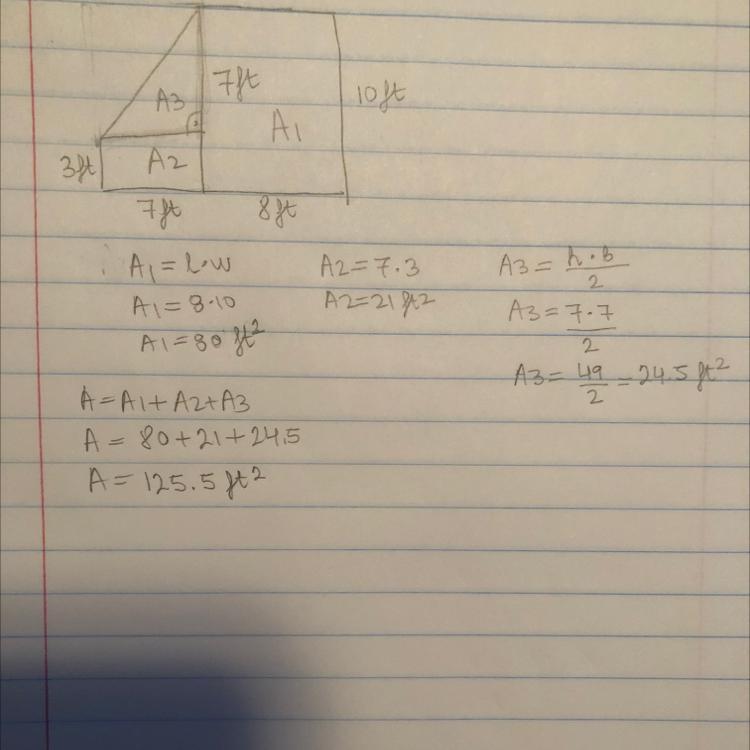 7ft
10ft
A3
A1
3ft
A2
7ft
8ft
A1 = l·w
A1 = 8·10
A1 = 80 ft²
A2 = 7·3
A2 = 21 ft²
A3 = h·b/2
A3 = 7·7/2
A3 = 49/2 = 24.5 ft²
A = A1 + A2 + A3
A = 80 + 21 + 24.5
A = 125.5 ft²